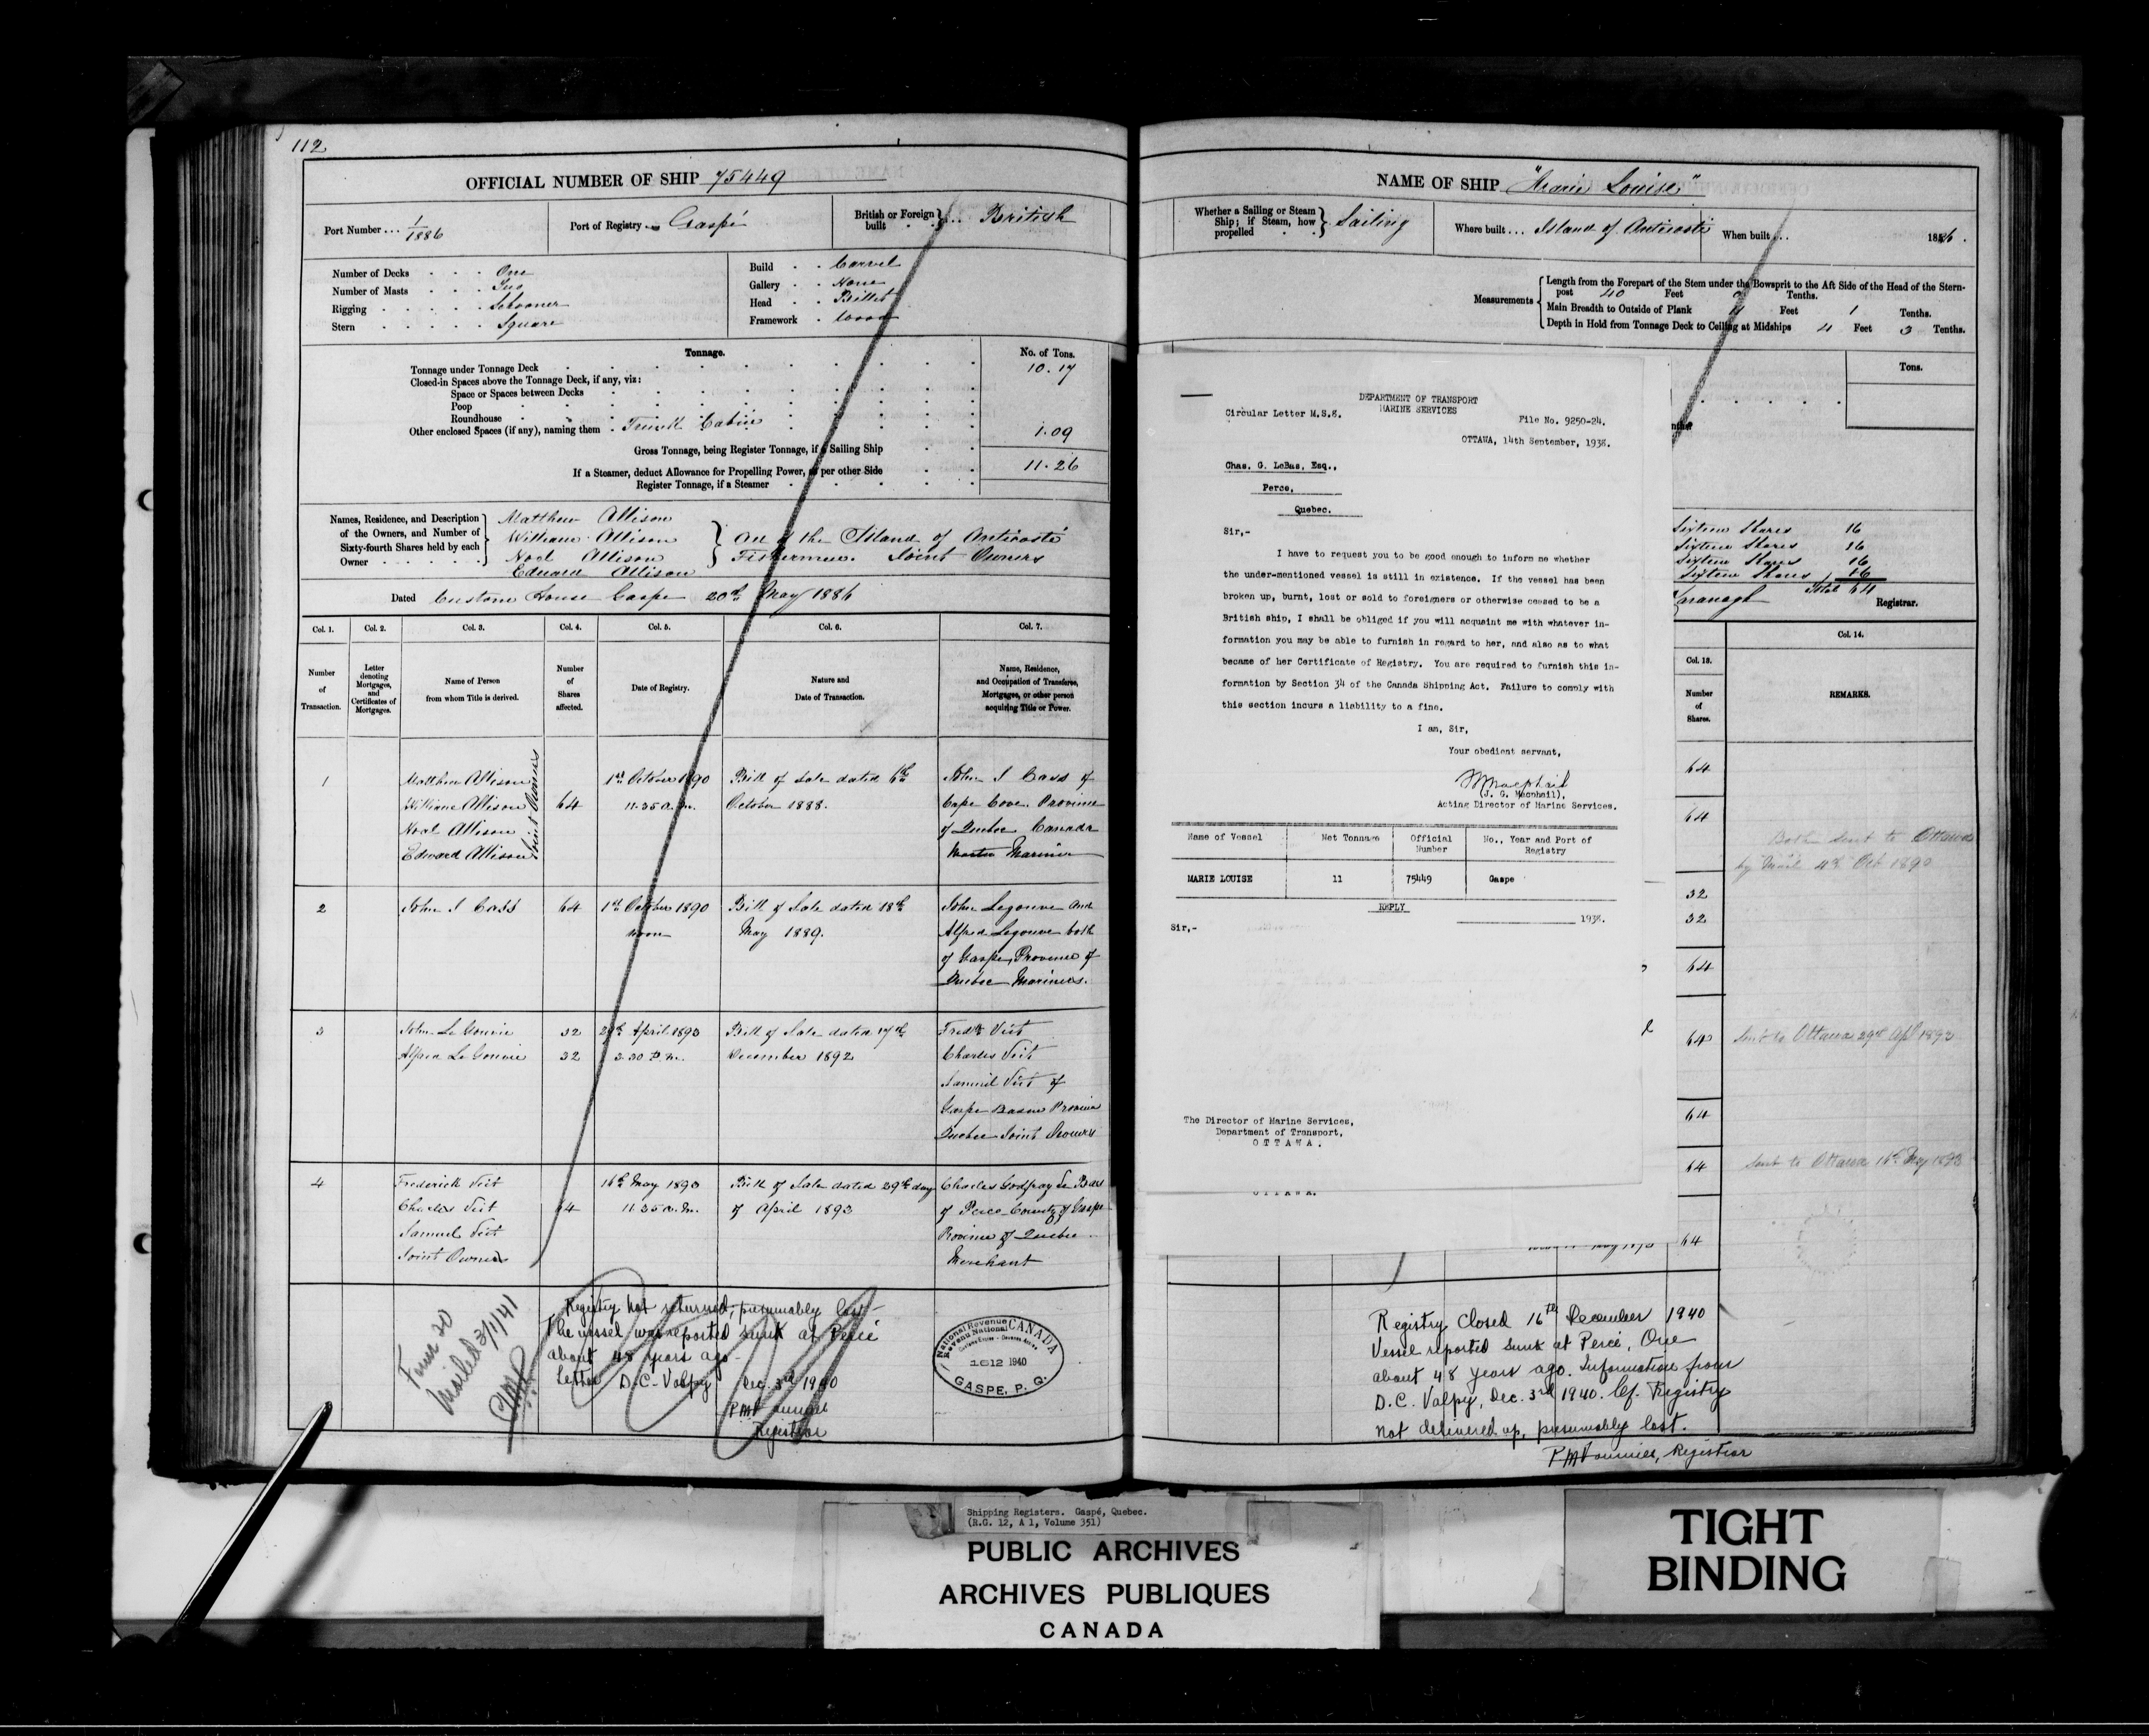 112
OFFICIAL NUMBER OF SHIP 75449
Port Number ... 1/1886
Port of Registry Gaspé
British or Foreign built } ... British
Number of Decks . . . One
Number of Masts . . . Two
Rigging . . . . . Schooner
Stern . . . . . Square
Build . . Carvel
Gallery . . None
Head . . Billet
Framework . Wood
Tonnage.
No. of Tons.
Tonnage under Tonnage Deck 10.17
Closed-in Spaces above the Tonnage Deck, if any, viz:
Space or Spaces between Decks
Poop
Roundhouse
Other enclosed Spaces (if any), naming them . Trunk Cabin 1.09
Gross Tonnage, being Register Tonnage, if a Sailing Ship 11.26
If a Steamer, deduct Allowance for Propelling Power, as per other Side
Register Tonnage, if a Steamer
Names, Residence, and Description
of the Owners, and Number of
Sixty-fourth Shares held by each
Owner
Matthew Allison
William Allison
Noel Allison
Edward Allison
All of the Island of Anticosti
Fishermen. Joint Owners
Dated Custom House Gaspe 20th May 1886
Col. 1. Col. 2. Col. 3. Col. 4. Col. 5. Col. 6. Col. 7.
Number of Transaction.
Letter denoting Mortgages, and Certificates of Mortgages.
Name of Person from whom Title is derived.
Number of Shares affected.
Date of Registry.
Nature and Date of Transaction.
Name, Residence, and Occupation of Transferee, Mortgagee, or other person acquiring Title or Power.
1
Matthew Allison
William Allison
Noel Allison
Edward Allison
Joint Owners
64
1st October 1890
11.35 a.m.
Bill of Sale dated 6th
October 1888.
John S Cass of
Cape Cove. Province
of Quebec Canada
Master Mariner
2
John S Cass
64
1st October 1890
noon
Bill of Sale dated 18th
May 1889.
John Legouve and
Alfred Legouve both
of Gaspe, Province of
Quebec Mariners.
3
John Le Gouvie 32
Alfred Le Gouvie 32
29th April 1893
3.30 P.m.
Bill of Sale dated 17th
December 1892
Fredk Veit
Charles Veit
Samuel Veit of
Gaspe Basin Province
Quebec Joint Owners
4
Frederick Veit
Charles Veit
Samuel Veit
Joint Owners
64
16th May 1893
11.35 a.m.
Bill of Sale dated 29th day
of April 1893
Charles Godfray Le Bas
of Perce County of Gaspe
Province of Quebec
Merchant
Form 20
Mailed 3/1/41
Registry not returned, presumably lost-
The vessel was reported sunk at Percé
about 48 years ago-
Letter D.C. Valpy Dec. 3rd 1940
Registrar
National Revenue
Revenu National
CANADA
1612 1940
GASPE, P. Q.
NAME OF SHIP "Marie Louise"
Whether a Sailing or Steam
Ship; if Steam, how
propelled } Sailing
Where built ... Island of Anticosti
When built ... 1886.
Measurements
Length from the Forepart of the Stem under the Bowsprit to the Aft Side of the Head of the Stern-
post 40 Feet Tenths.
Main Breadth to Outside of Plank 11 Feet 1 Tenths.
Depth in Hold from Tonnage Deck to Ceiling at Midships 4 Feet 3 Tenths.
Tons.
Sixteen Shares 16
Sixteen Shares 16
Sixteen Shares 16
Sixteen Shares 16
Total 64
Registrar.
DEPARTMENT OF TRANSPORT
MARINE SERVICES
Circular Letter M.S.8.
File No. 9250-24.
OTTAWA, 14th September, 1938.
Chas. G. LeBas, Esq.,
Perce,
Quebec.
Sir,-
I have to request you to be good enough to inform me whether
the under-mentioned vessel is still in existence. If the vessel has been
broken up, burnt, lost or sold to foreigners or otherwise ceased to be a
British ship, I shall be obliged if you will acquaint me with whatever in-
formation you may be able to furnish in regard to her, and also as to what
became of her Certificate of Registry. You are required to furnish this in-
formation by Section 34 of the Canada Shipping Act. Failure to comply with
this section incurs a liability to a fine.
I am, Sir,
Your obedient servant,
(J. G. Macphail),
Acting Director of Marine Services.
Name of Vessel Net Tonnage Official Number No., Year and Port of Registry
MARIE LOUISE 11 75449 Gaspe
REPLY
1938.
Sir,-
The Director of Marine Services,
Department of Transport,
OTTAWA.
OTTAWA.
Col. 13.
Number of Shares.
Col. 14.
REMARKS.
64
64
Both sent to Ottawa
by Mail 4th Oct 1890
32
32
64
64
Sent to Ottawa 29th Apl 1893
64
64
Sent to Ottawa 16th May 1893
64
Registry Closed 16th December 1940
Vessel reported sunk at Percé, Que
about 48 years ago. Information from
D.C. Valpy, Dec. 3rd 1940. Cf. Registry
not delivered up, presumably lost.
Registrar
Shipping Registers. Gaspé, Quebec.
(R.G. 12, A 1, Volume 351)
PUBLIC ARCHIVES
ARCHIVES PUBLIQUES
CANADA
TIGHT
BINDING